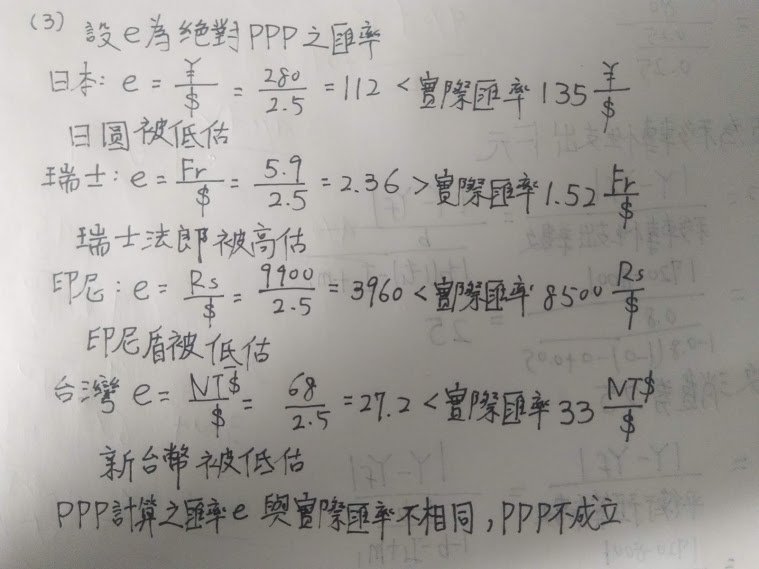 (3) 設e為絕對PPP之匯率
日本: e = ¥/$ = 280/2.5 = 112 < 實際匯率 135 ¥/$
日圓被低估
瑞士: e = Fr/$ = 5.9/2.5 = 2.36 > 實際匯率 1.52 Fr/$
瑞士法郎被高估
印尼: e = Rs/$ = 9900/2.5 = 3960 < 實際匯率 8500 Rs/$
印尼盾被低估
台灣 e = NT$/$ = 68/2.5 = 27.2 < 實際匯率 33 NT$/$
新台幣被低估
PPP計算之匯率e與實際匯率不相同, PPP不成立